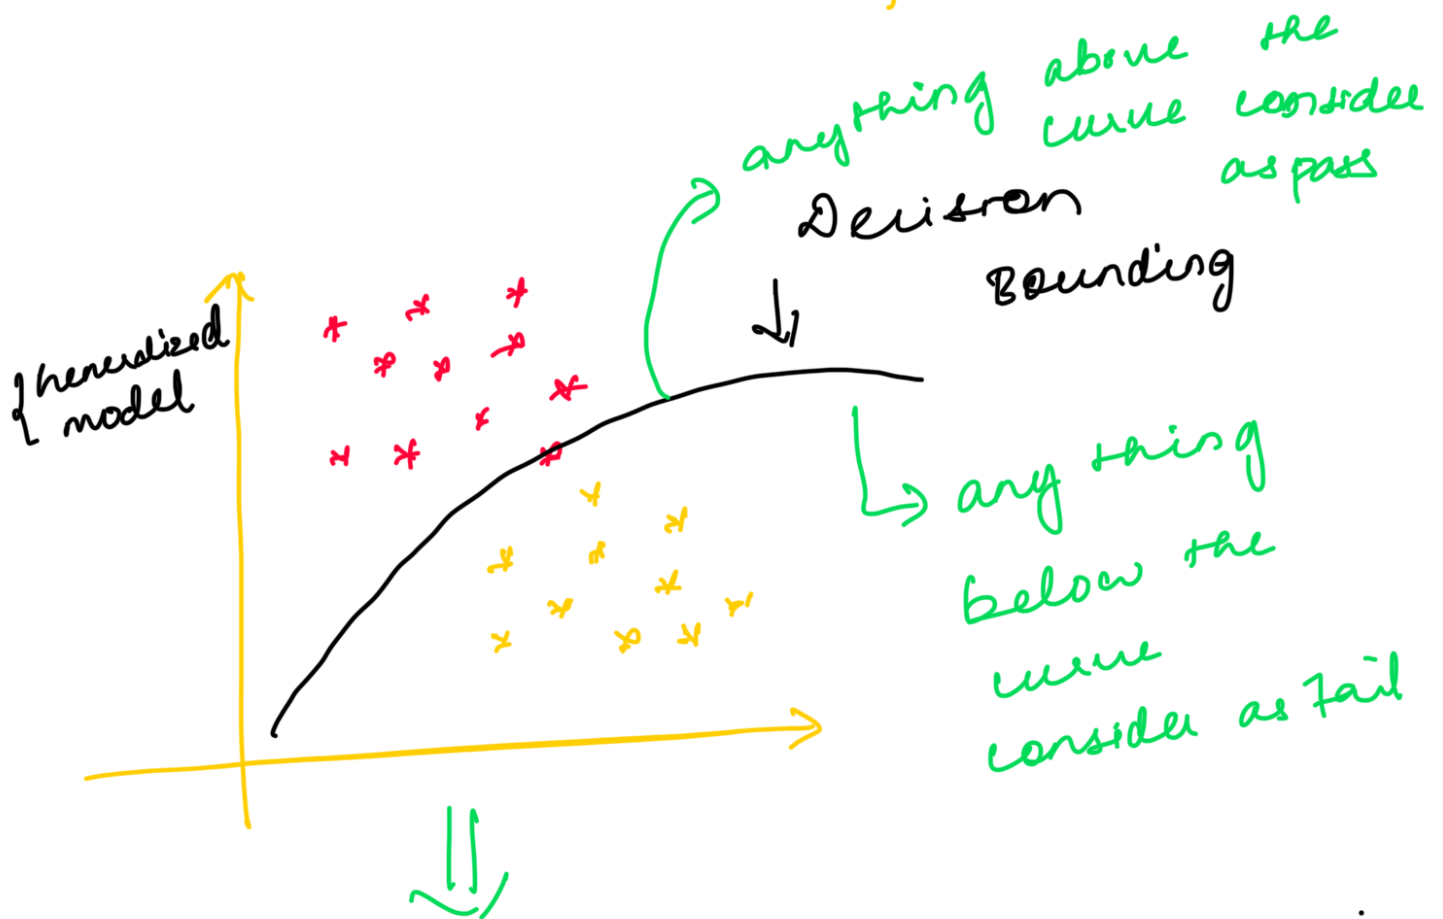 anything above the
curve consider
as pass
Decision
Bounding
{ Generalized
model
any thing
below the
curve
consider as Fail